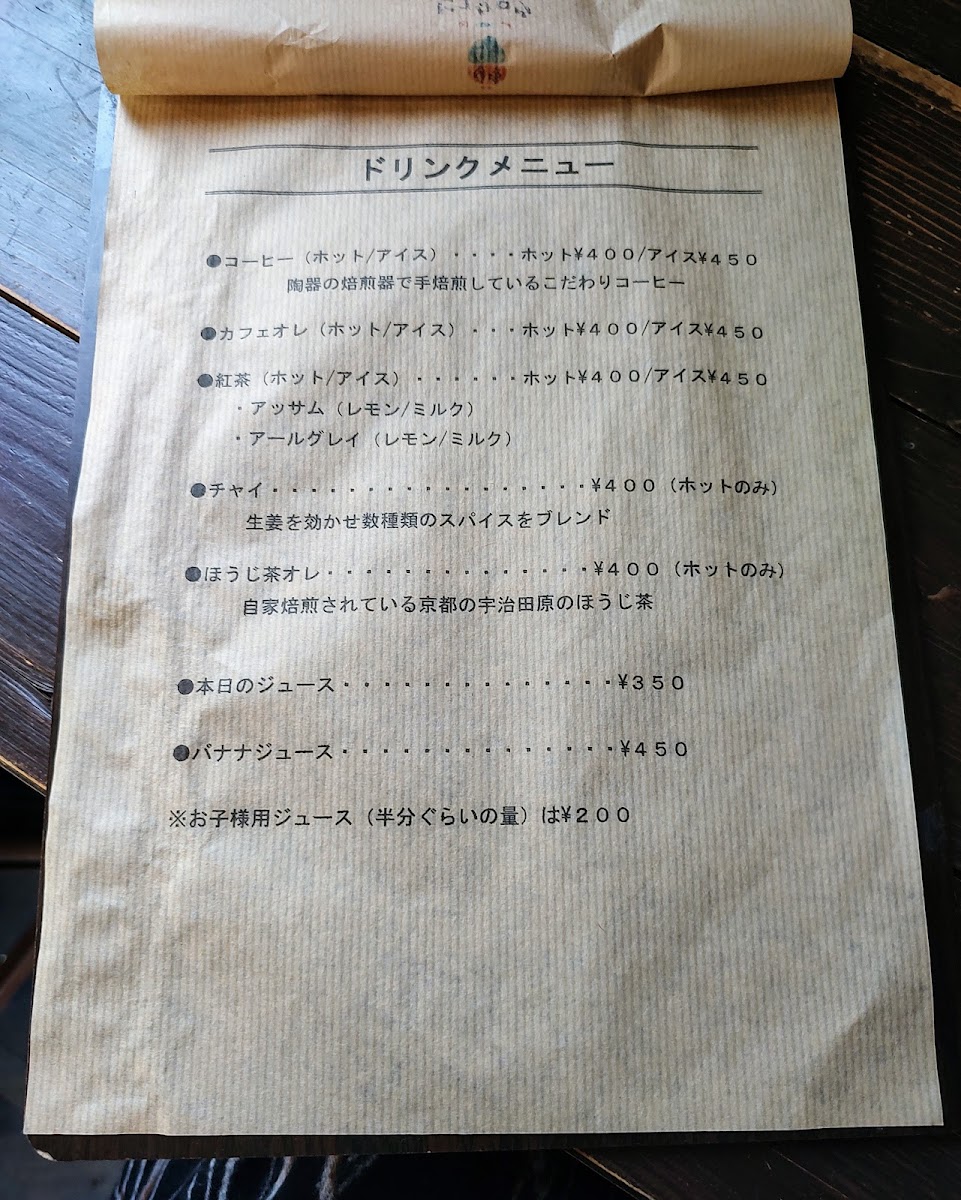 ドリンクメニュー
●コーヒー（ホット/アイス）・・・・ホット¥４００/アイス¥４５０
陶器の焙煎器で手焙煎しているこだわりコーヒー
●カフェオレ（ホット/アイス）・・・ホット¥４００/アイス¥４５０
●紅茶（ホット/アイス）・・・・・・ホット¥４００/アイス¥４５０
・アッサム（レモン/ミルク）
・アールグレイ（レモン/ミルク）
●チャイ・・・・・・・・・・・・・・・・・¥４００（ホットのみ）
生姜を効かせ数種類のスパイスをブレンド
●ほうじ茶オレ・・・・・・・・・・・・・・¥４００（ホットのみ）
自家焙煎されている京都の宇治田原のほうじ茶
●本日のジュース・・・・・・・・・・・・・・¥３５０
●バナナジュース・・・・・・・・・・・・・・¥４５０
※お子様用ジュース（半分ぐらいの量）は¥２００